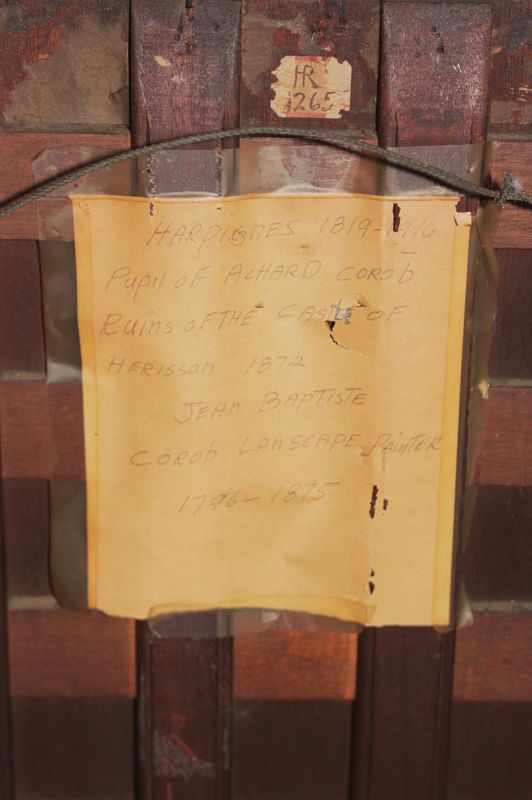 HR
1265
HARPIGNES 1819-1916
Pupil OF ACHARD COROb
RUins OF THE CASTLE OF
HERISSON 1872
JEAN BAPTISTE
COROb LANSCAPE PAINTER
1796-1875